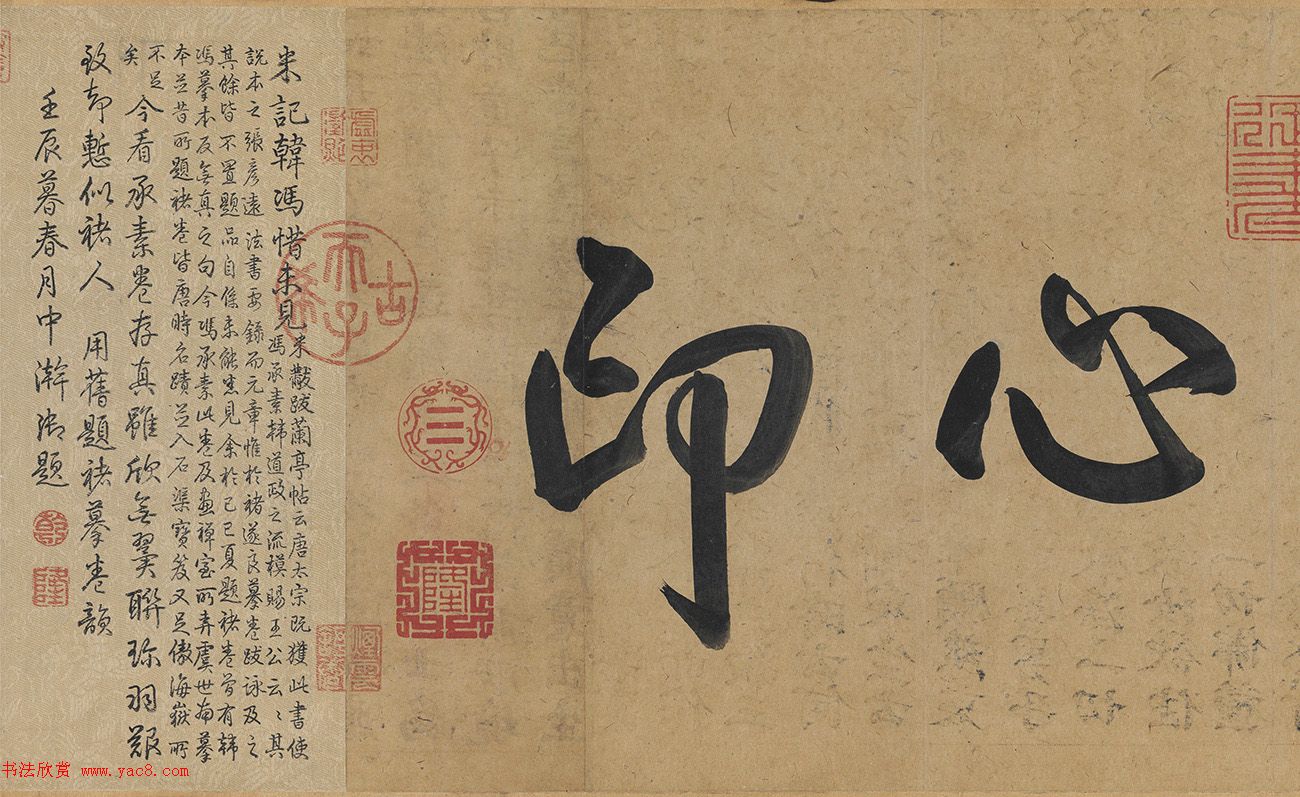 心印
米記韓馮惜未見米黻跋蘭亭帖云唐太宗既獲此書使
馮承素韓道政之流模賜王公云〻其
說本之張彥遠法書要錄而元章惟於褚遂良摹卷跋詠及之
其餘皆不置題品自係未能悉見余於己巳夏題褚卷曾有韓
馮摹本反無真之句今馮承素此卷及畫禪室所弆虞世南摹
本並昔所題褚卷皆唐時名蹟並入石渠寶笈又足傲海嶽所
不足
矣今看承素卷存真雖欣無翼聯珎羽艱
致却慙似褚人用舊題褚摹卷韻
壬辰暮春月中澣御題
古
天子
三
隆
乾
隆
书法欣赏 www.yac8.com